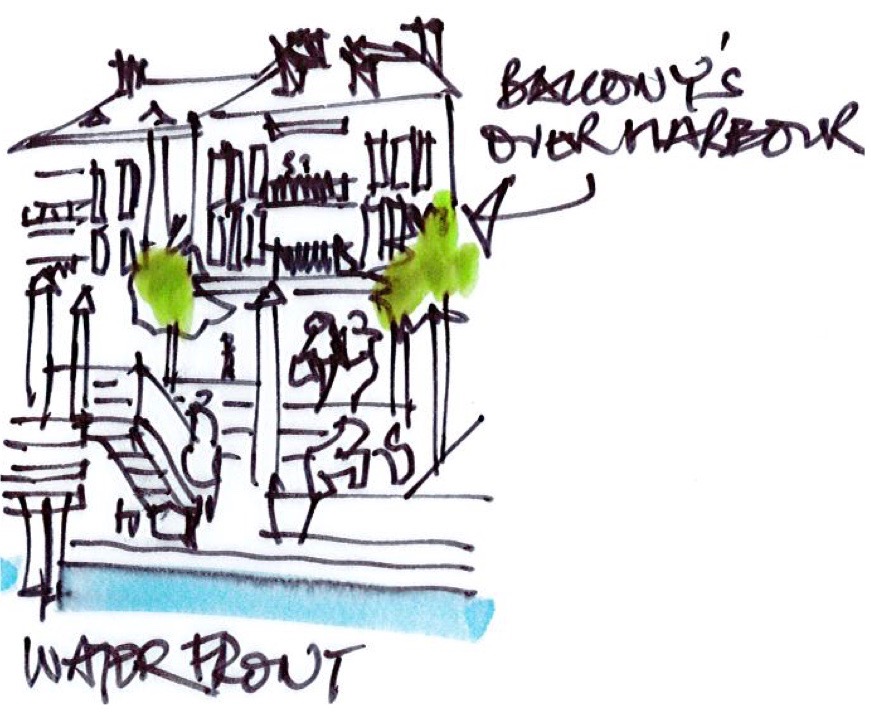 BALCONY'S
OVER HARBOUR
WATER FRONT